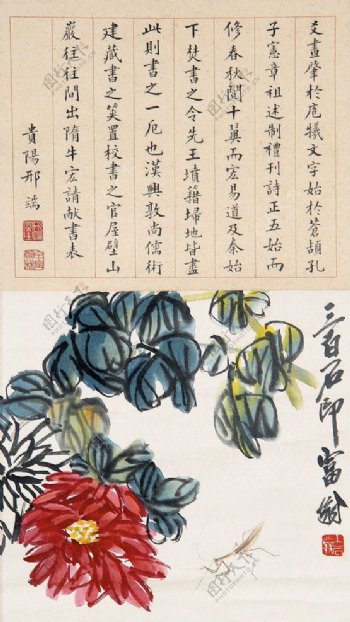 爻畫肇於庖犧文字始於蒼頡孔
子憲章祖述制禮刊詩正五始而
修春秋闡十翼而宏易道及秦始
下焚書之令先王墳籍掃地皆盡
此則書之一厄也漢興敦尚儒術
建藏書之筴置校書之官屋壁山
巖往往間出隋牛宏請獻書表
貴陽邢端
三百石印富翁